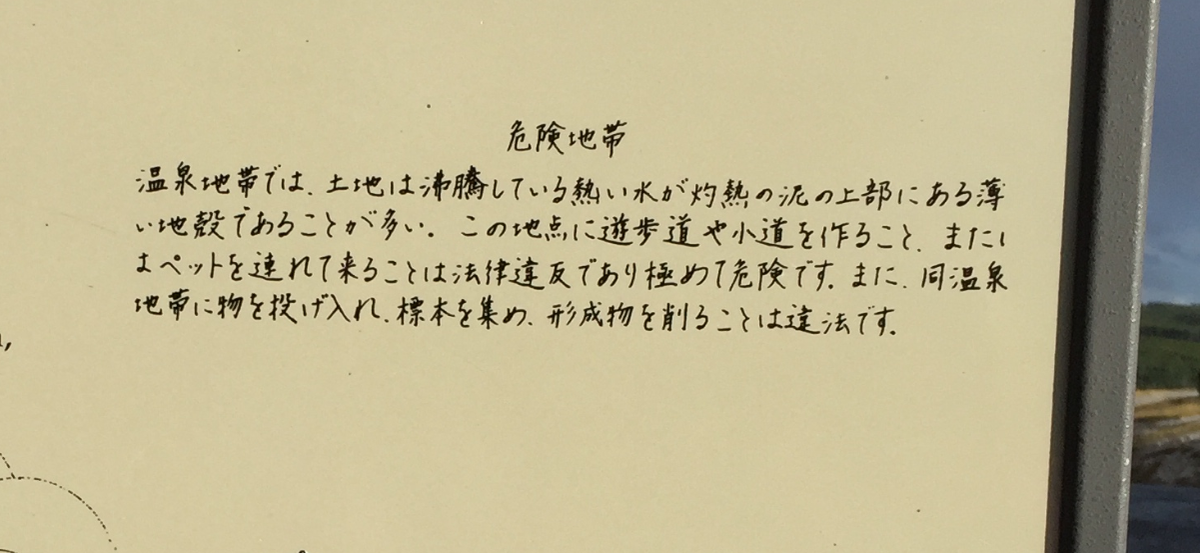 危険地帯
温泉地帯では、土地は沸騰している熱い水が灼熱の泥の上部にある薄
い地殻であることが多い。この地点に遊歩道や小道を作ること、または
はペットを連れて来ることは法律違反であり極めて危険です。また、同温泉
地帯に物を投げ入れ、標本を集め、形成物を削ることは違法です。